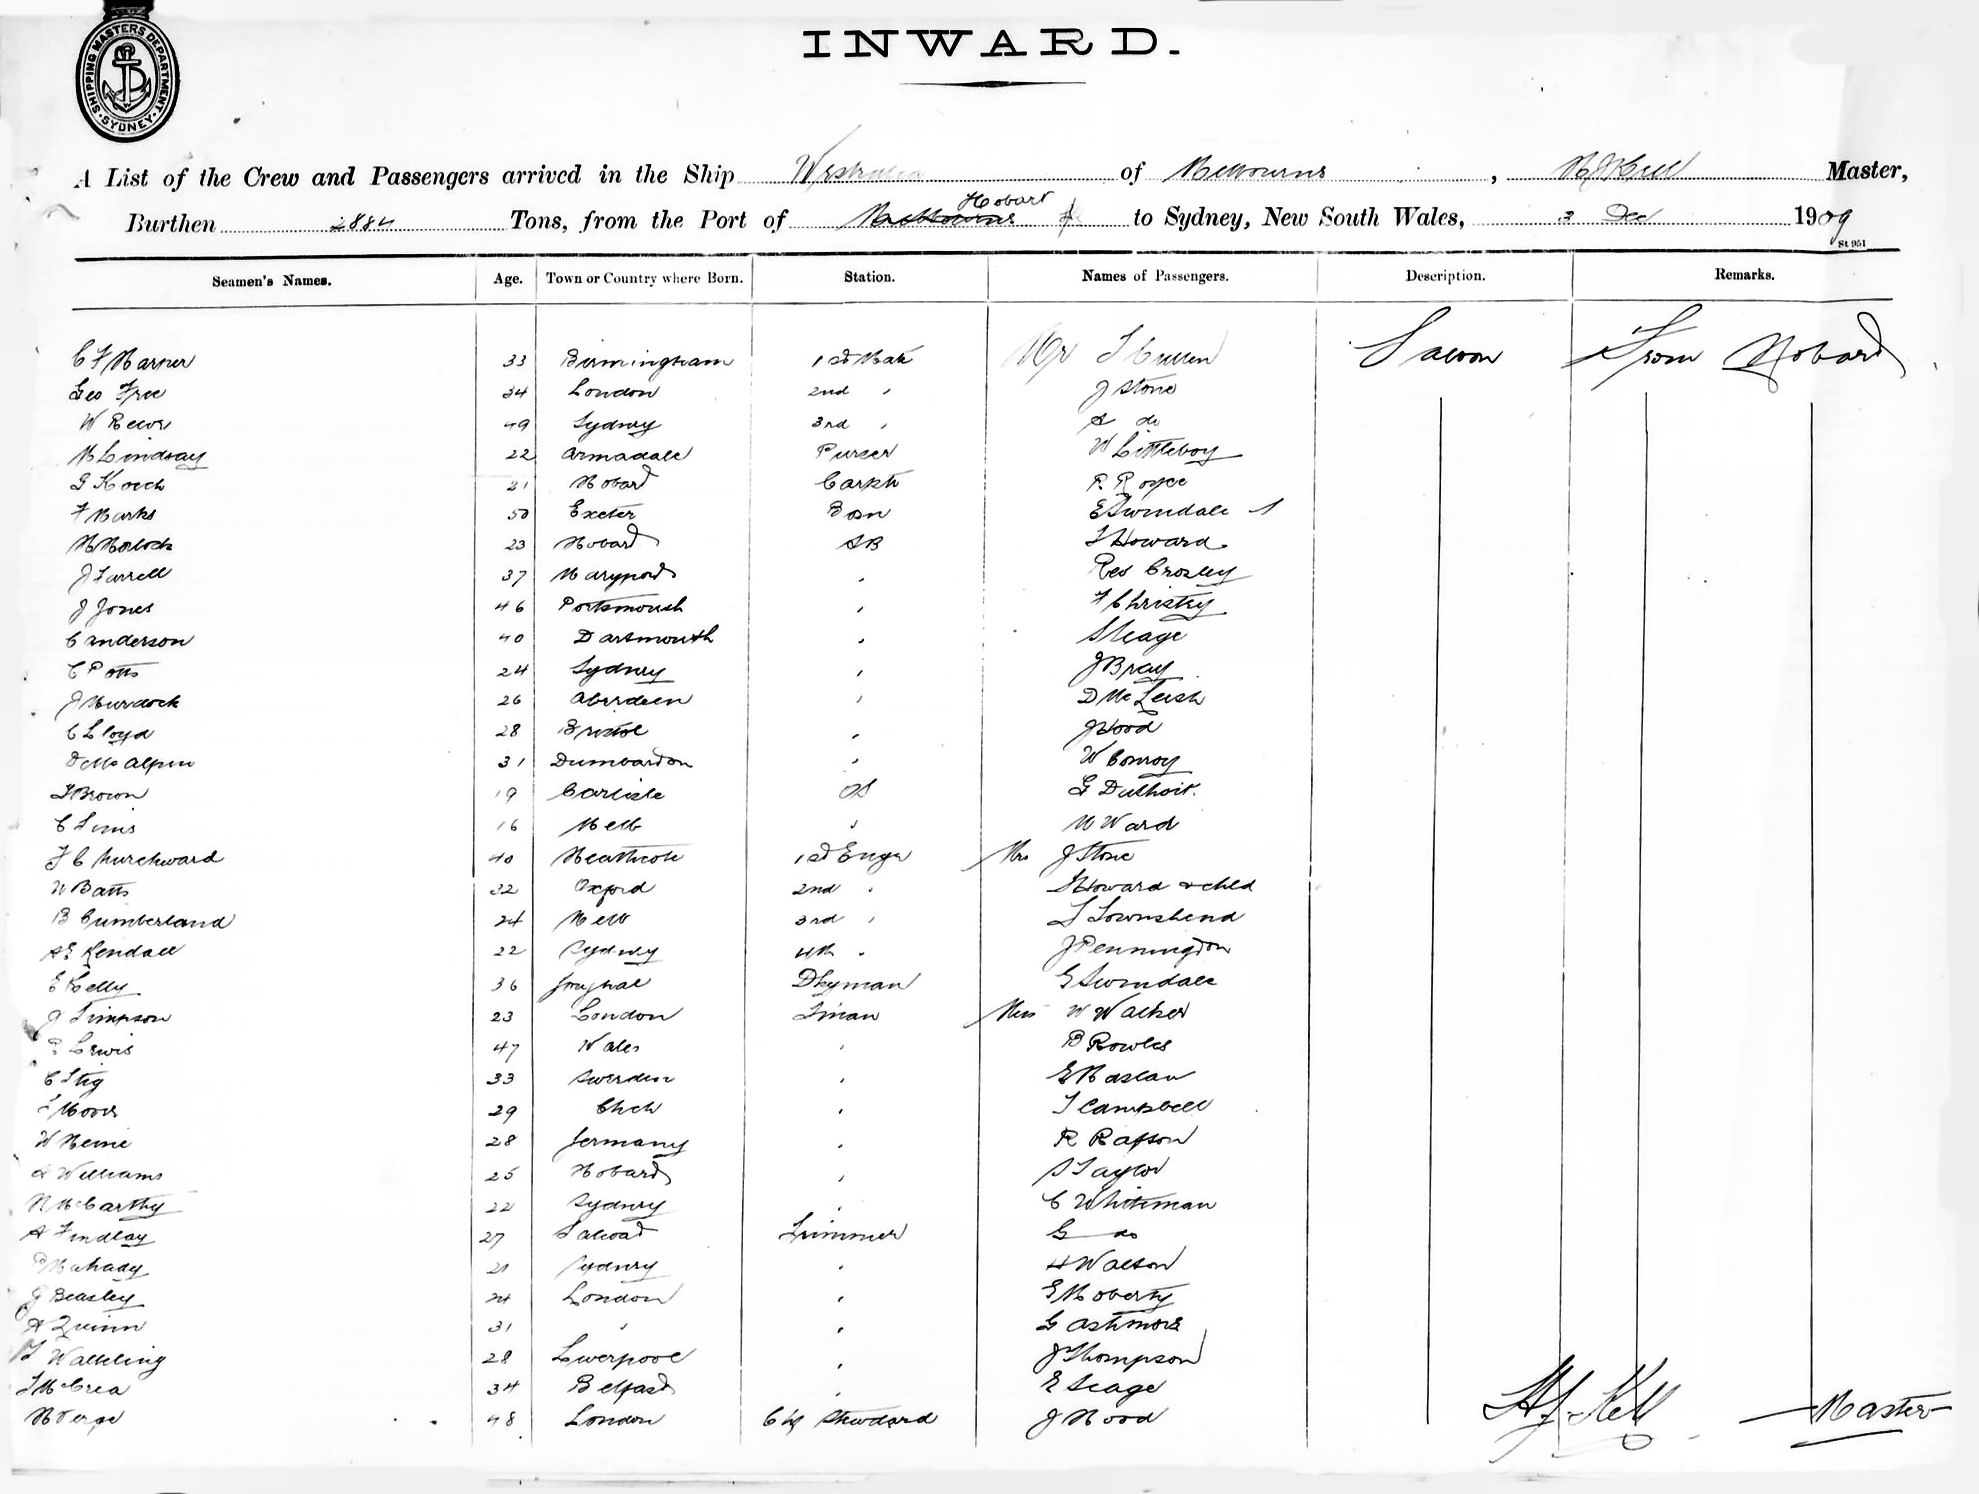 SHIPPING MASTERS DEPARTMENT
SYDNEY
INWARD.
A List of the Crew and Passengers arrived in the Ship Westralia of Melbourne, H J Kell Master,
Burthen 2884 Tons, from the Port of Melbourne Hobart to Sydney, New South Wales, 3 Dec 1909
St 951
Seamen's Names. Age. Town or Country where Born. Station. Names of Passengers. Description. Remarks.
C F Harper 33 Birmingham 1st Mate Mr T Cullen Saloon From Hobart
Geo Free 34 London 2nd " J Stone
W 49 Sydney 3rd " A do
H Lindsay 22 Armadale Purser W Littleboy
G Koech 21 Hobart Carptr R Royce
F Marks 50 Exeter Bosn E Swindale
H 23 Hobart AB T Howard
J Farrell 37 Maryport " Rev Crosley
J Jones 46 Portsmouth " F Christey
C Anderson 40 Dartmouth " S Leage
C Potts 24 Sydney " J Bray
J Murdock 26 Aberdeen " D McLeish
C Lloyd 28 Bristol " J Hood
D McAlpin 31 Dumbarton " W Conroy
T Brown 19 Carlisle OS G Duthoit
C Sims 16 Melb " W Ward
F Churchward 40 Heathcote 1st Engr Mrs J Stone
W Batts 32 Oxford 2nd " T Howard & chld
B Cumberland 24 Melb 3rd " L Townshend
A E Kendall 22 Sydney 4th " J Pennington
E Kelly 36 Youghal Dkyman E Swindale
J Simpson 23 London Fman Miss W Walker
P Lewis 47 Wales " B Rowles
C Stig 33 Sweden " E Haslam
T Moore 29 Chch " T Campbell
W Heine 28 Germany " R Rafton
A Williams 25 Hobart " S Taylor
N McCarthy 22 Sydney " C Whiteman
A Findlay 27 Trimmer G do
P Mahady 21 Sydney " H Watson
J Beasley 24 London " E Moberty
A Quinn 31 " " G Ashmore
T Watkling 28 Liverpool " J Thompson
T McCrea 34 Belfast " E Leage
H Verge 48 London Chf Steward J Hood
H J Kell Master